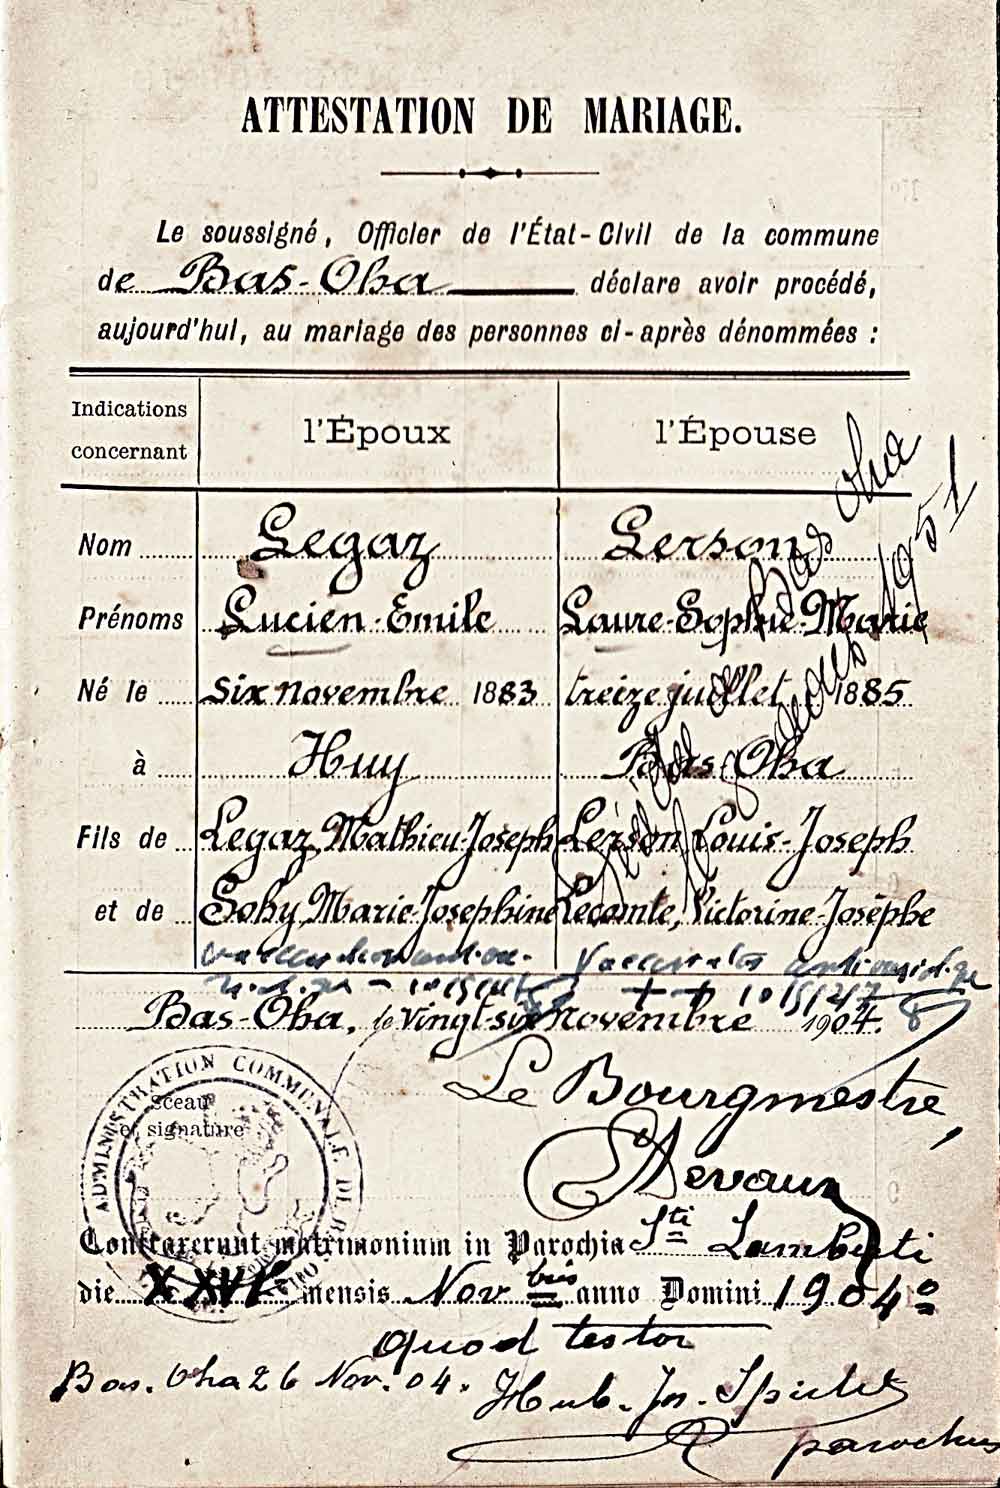 ATTESTATION DE MARIAGE.
Le soussigné, Officier de l'État-Civil de la commune
de Bas-Oha déclare avoir procédé,
aujourd'hui, au mariage des personnes ci-après dénommées :
Indications concernant l'Époux l'Épouse
Nom Legaz Lerson
Prénoms Lucien-Emile Laure-Sophie-Marie
Né le six novembre 1883 treize juillet 1885
à Huy Bas-Oha
Fils de Legaz, Mathieu-Joseph Lerson, Louis-Joseph
et de Sohy, Marie-Josephine Lecomte, Victorine-Josèphe
Bas Oha
1951
Bas-Oha, le vingt-six novembre 1904.
Le Bourgmestre,
Devaux
ADMINISTRATION COMMUNALE DE
Sceau
et signature
Contraxerunt matrimonium in Parochia Sti Lamberti
die XXVI mensis Novbris anno Domini 1904º
quod testor
Bas. Oha 26 Nov. 04.
Hub. Jos.
parochus